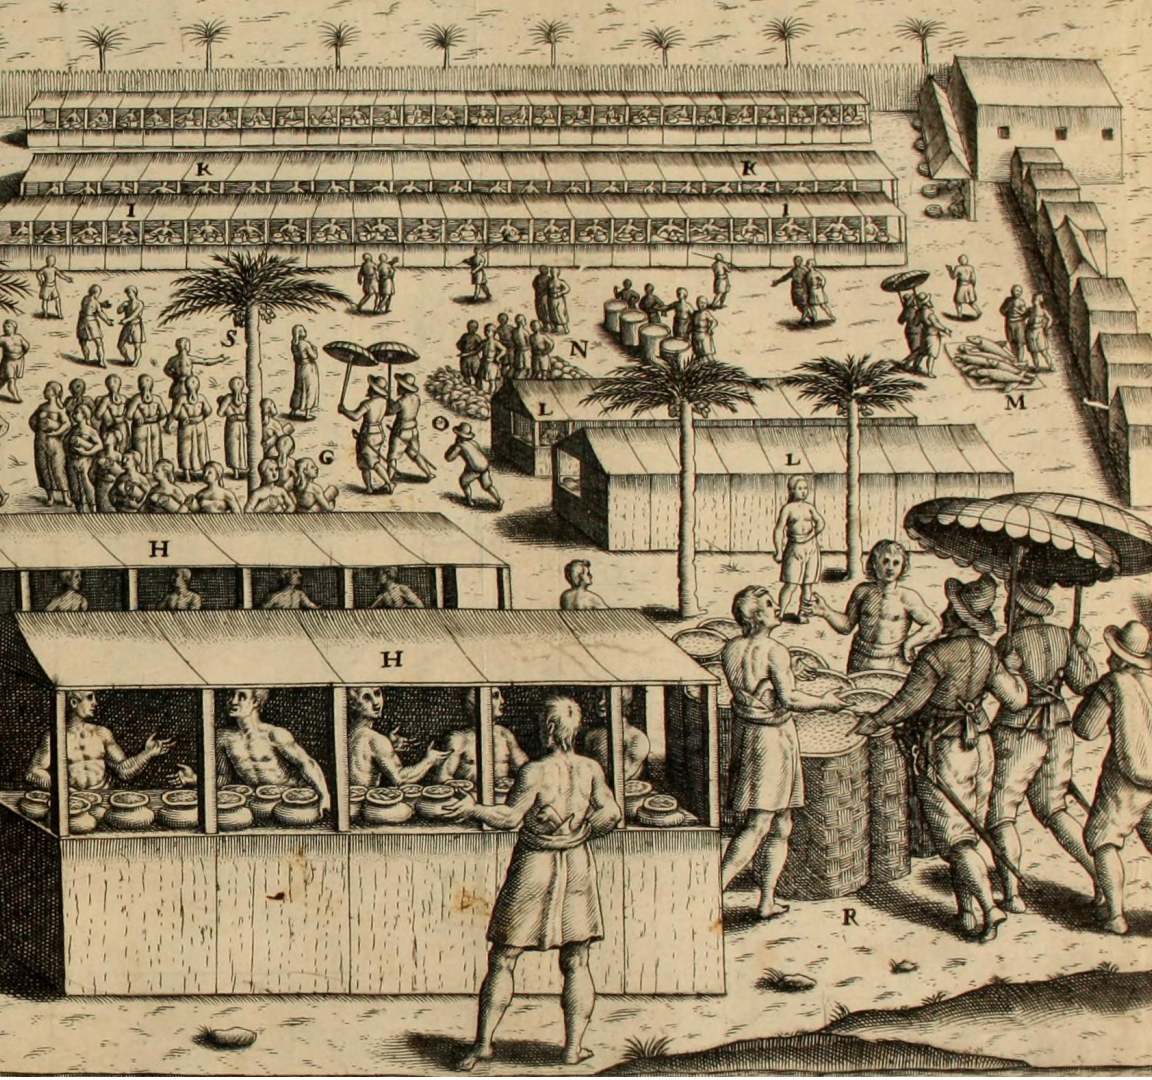 K K
I I
S
N
O
M
L
G
L
H
H
R